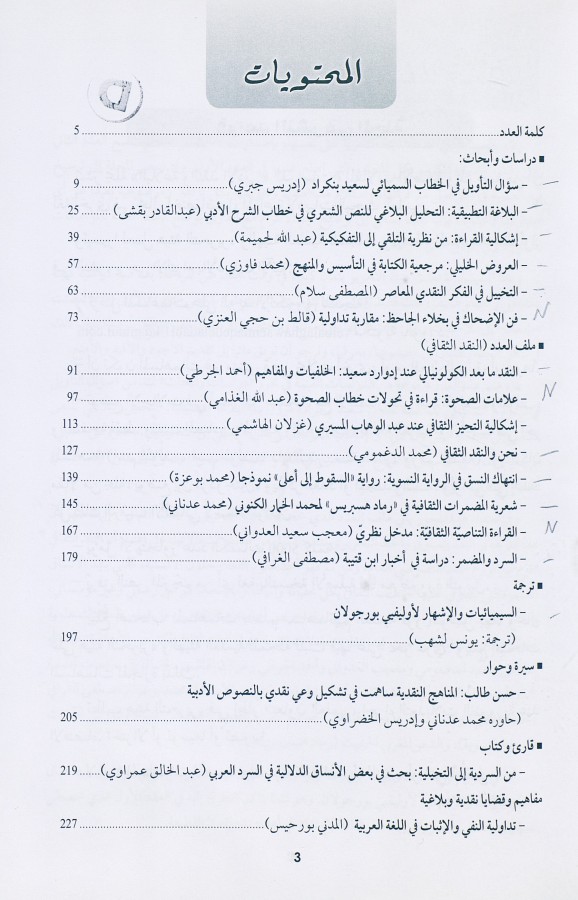 المحتويات
كلمة العدد ........ 5
▪ دراسات وأبحاث:
– سؤال التأويل في الخطاب السميائي لسعيد بنكراد (إدريس جبري) ........ 9
– البلاغة التطبيقية: التحليل البلاغي للنص الشعري في خطاب الشرح الأدبي (عبدالقادر بقشى) ........ 25
– إشكالية القراءة: من نظرية التلقي إلى التفكيكية (عبد الله لحميمة) ........ 39
– العروض الخليلي: مرجعية الكتابة في التأسيس والمنهج (محمد فاوزي) ........ 57
– التخييل في الفكر النقدي المعاصر (المصطفى سلام) ........ 63
– فن الإضحاك في بخلاء الجاحظ: مقاربة تداولية (قالط بن حجي العنزي) ........ 73
▪ ملف العدد (النقد الثقافي)
– النقد ما بعد الكولونيالي عند إدوارد سعيد: الخلفيات والمفاهيم (أحمد الجرطي) ........ 91
– علامات الصحوة: قراءة في تحولات خطاب الصحوة (عبد الله الغذامي) ........ 97
– إشكالية التحيز الثقافي عند عبد الوهاب المسيري (غزلان الهاشمي) ........ 113
– نحن والنقد الثقافي (محمد الدغمومي) ........ 127
– انتهاك النسق في الرواية النسوية: رواية "السقوط إلى أعلى" نموذجا (محمد بوعزة) ........ 139
– شعرية المضمرات الثقافية في "رماد هسبريس" لمحمد الخمار الكنوني (محمد عدناني) ........ 145
– القراءة التناصيّة الثقافيّة: مدخل نظريّ (معجب سعيد العدواني) ........ 167
– السرد والمضمر: دراسة في أخبار ابن قتيبة (مصطفى الغرافي) ........ 179
▪ ترجمة
– السيميائيات والإشهار لأوليفيي بورجولان
(ترجمة: يونس لشهب) ........ 197
▪ سيرة وحوار
– حسن طالب: المناهج النقدية ساهمت في تشكيل وعي نقدي بالنصوص الأدبية
(حاوره محمد عدناني وإدريس الخضراوي) ........ 205
▪ قارئ وكتاب
– من السردية إلى التخيلية: بحث في بعض الأنساق الدلالية في السرد العربي (عبد الخالق عمراوي) ...... 219
مفاهيم وقضايا نقدية وبلاغية
– تداولية النفي والإثبات في اللغة العربية (المدني بورحيس) ........ 227
3